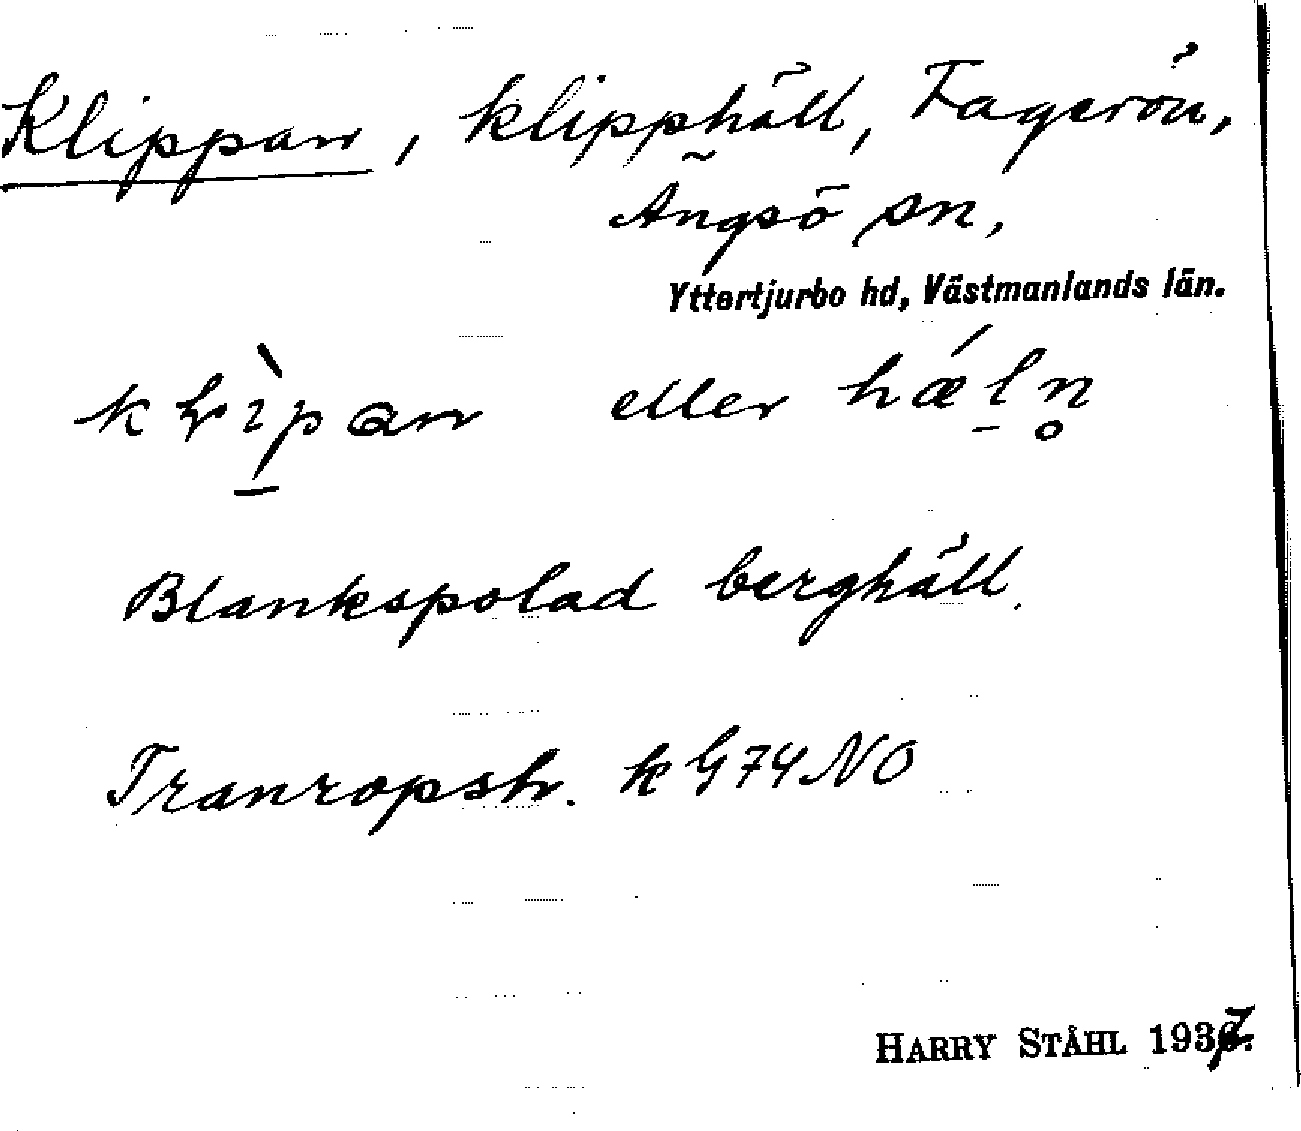 Klippan, klipphäll, Fagerön,
Ängsö sn,
Yttertjurbo hd, Västmanlands län.
eller hæln̥
Blankspolad berghäll.
Tranropsh. k G74NO
HARRY STÅHL 1937.